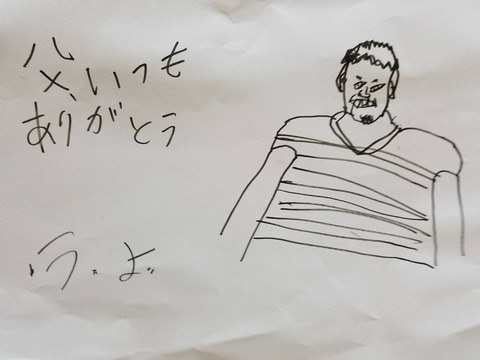 父、いつも
ありがとう